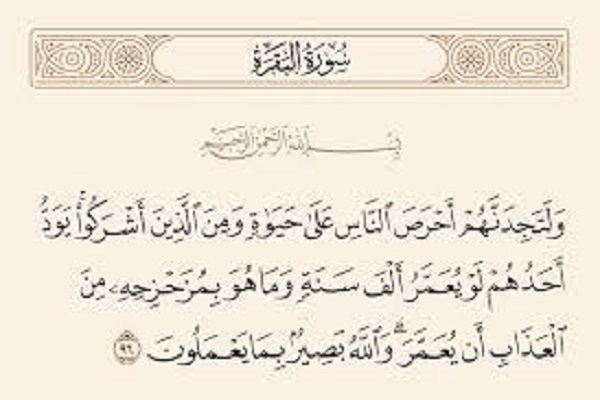 سُورَةُ البَقَرَةِ
بِسْمِ اللَّهِ الرَّحْمَٰنِ الرَّحِيمِ
وَلَتَجِدَنَّهُمْ أَحْرَصَ ٱلنَّاسِ عَلَىٰ حَيَوٰةٍ وَمِنَ ٱلَّذِينَ أَشْرَكُوا۟ۚ يَوَدُّ
أَحَدُهُمْ لَوْ يُعَمَّرُ أَلْفَ سَنَةٍ وَمَا هُوَ بِمُزَحْزِحِهِۦ مِنَ
ٱلْعَذَابِ أَن يُعَمَّرَۗ وَٱللَّهُ بَصِيرٌۢ بِمَا يَعْمَلُونَ ٩٦